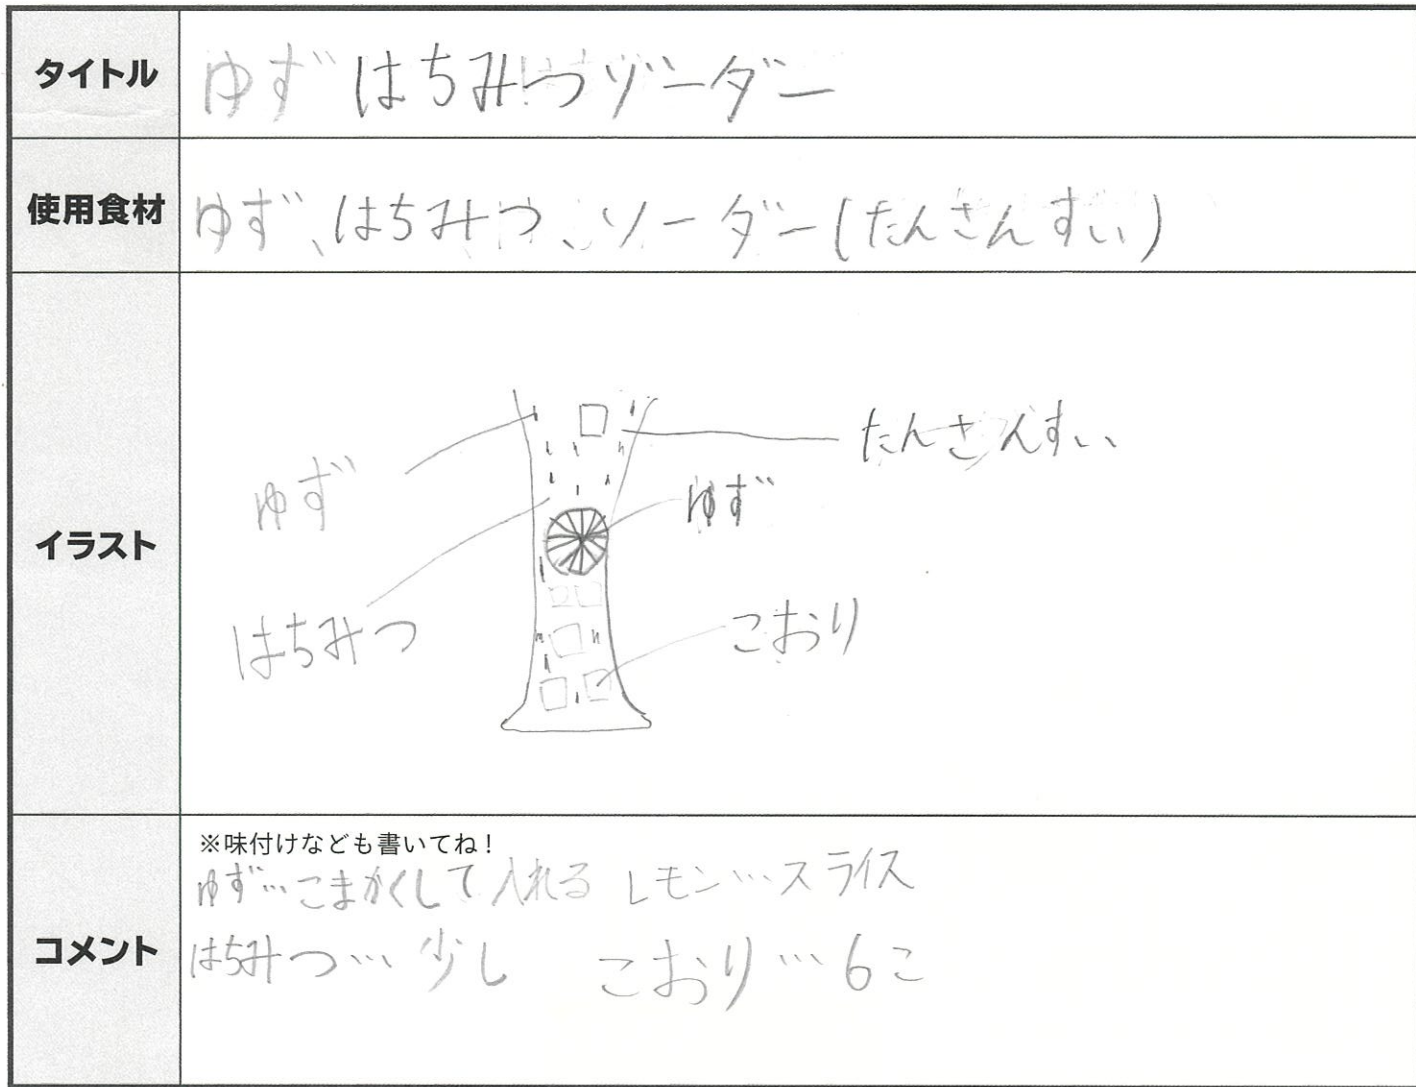 タイトル
ゆずはちみつソーダー
使用食材
ゆず、はちみつ、ソーダー(たんさんすい)
イラスト
たんさんすい
ゆず
ゆず
はちみつ
こおり
コメント
※味付けなども書いてね!
ゆず…こまかくして入れる レモン…スライス
はちみつ…少し こおり…6こ